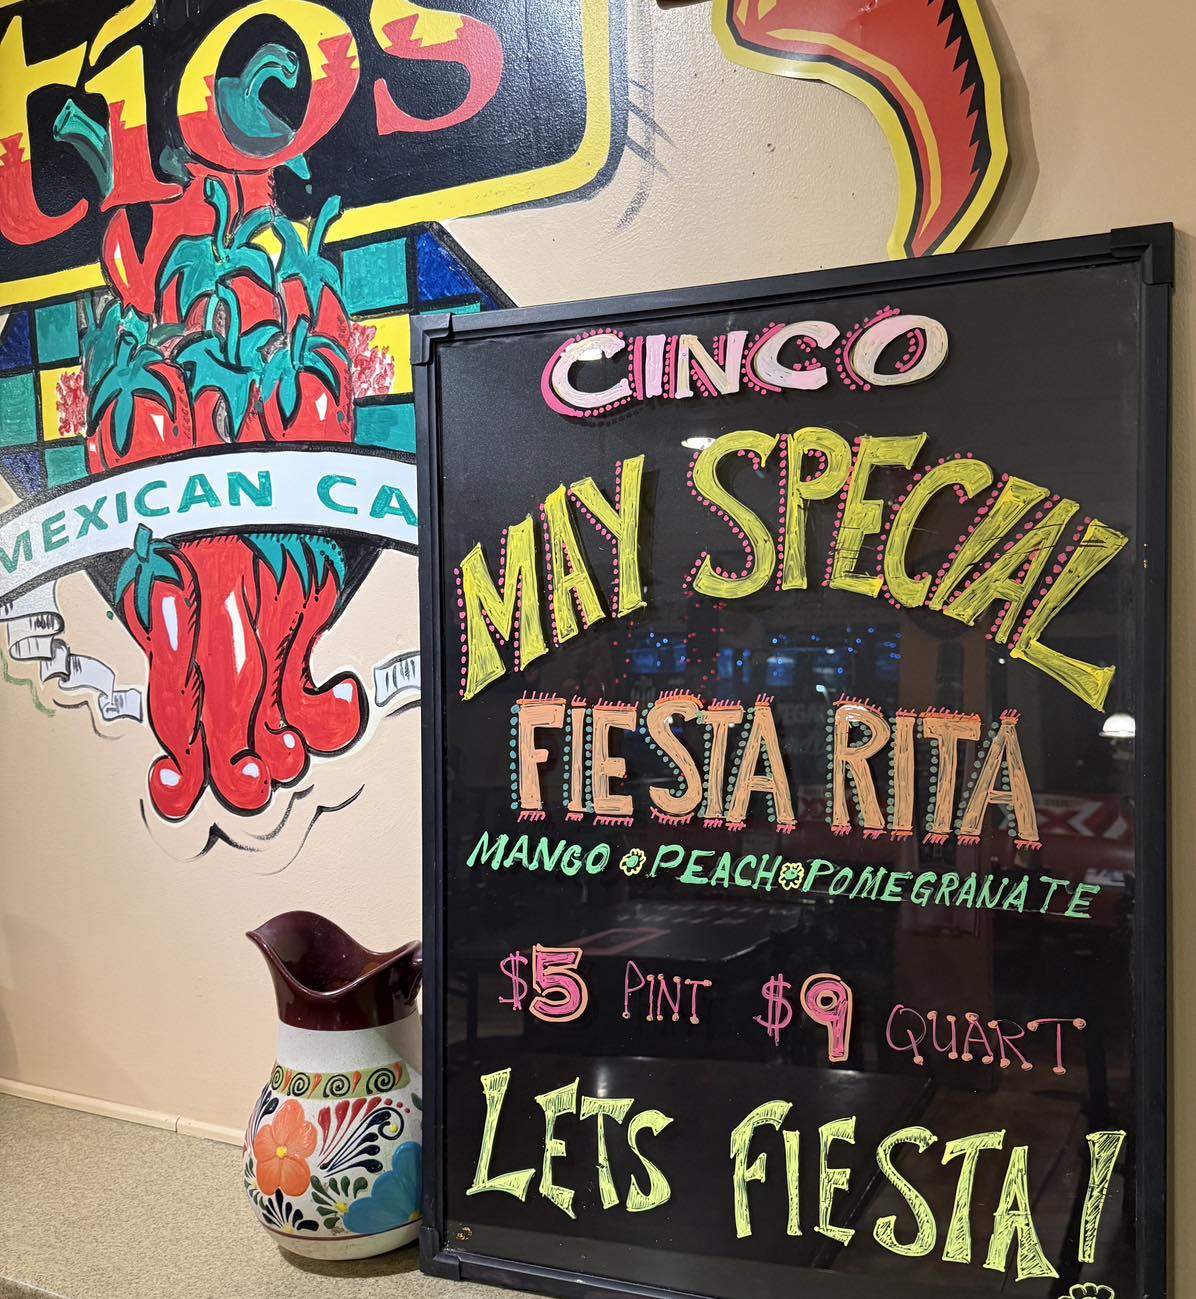 tios
MEXICAN CA
CINCO
MAY SPECIAL
FIESTA RITA
MANGO PEACH POMEGRANATE
$5 PINT $9 QUART
LETS FIESTA!